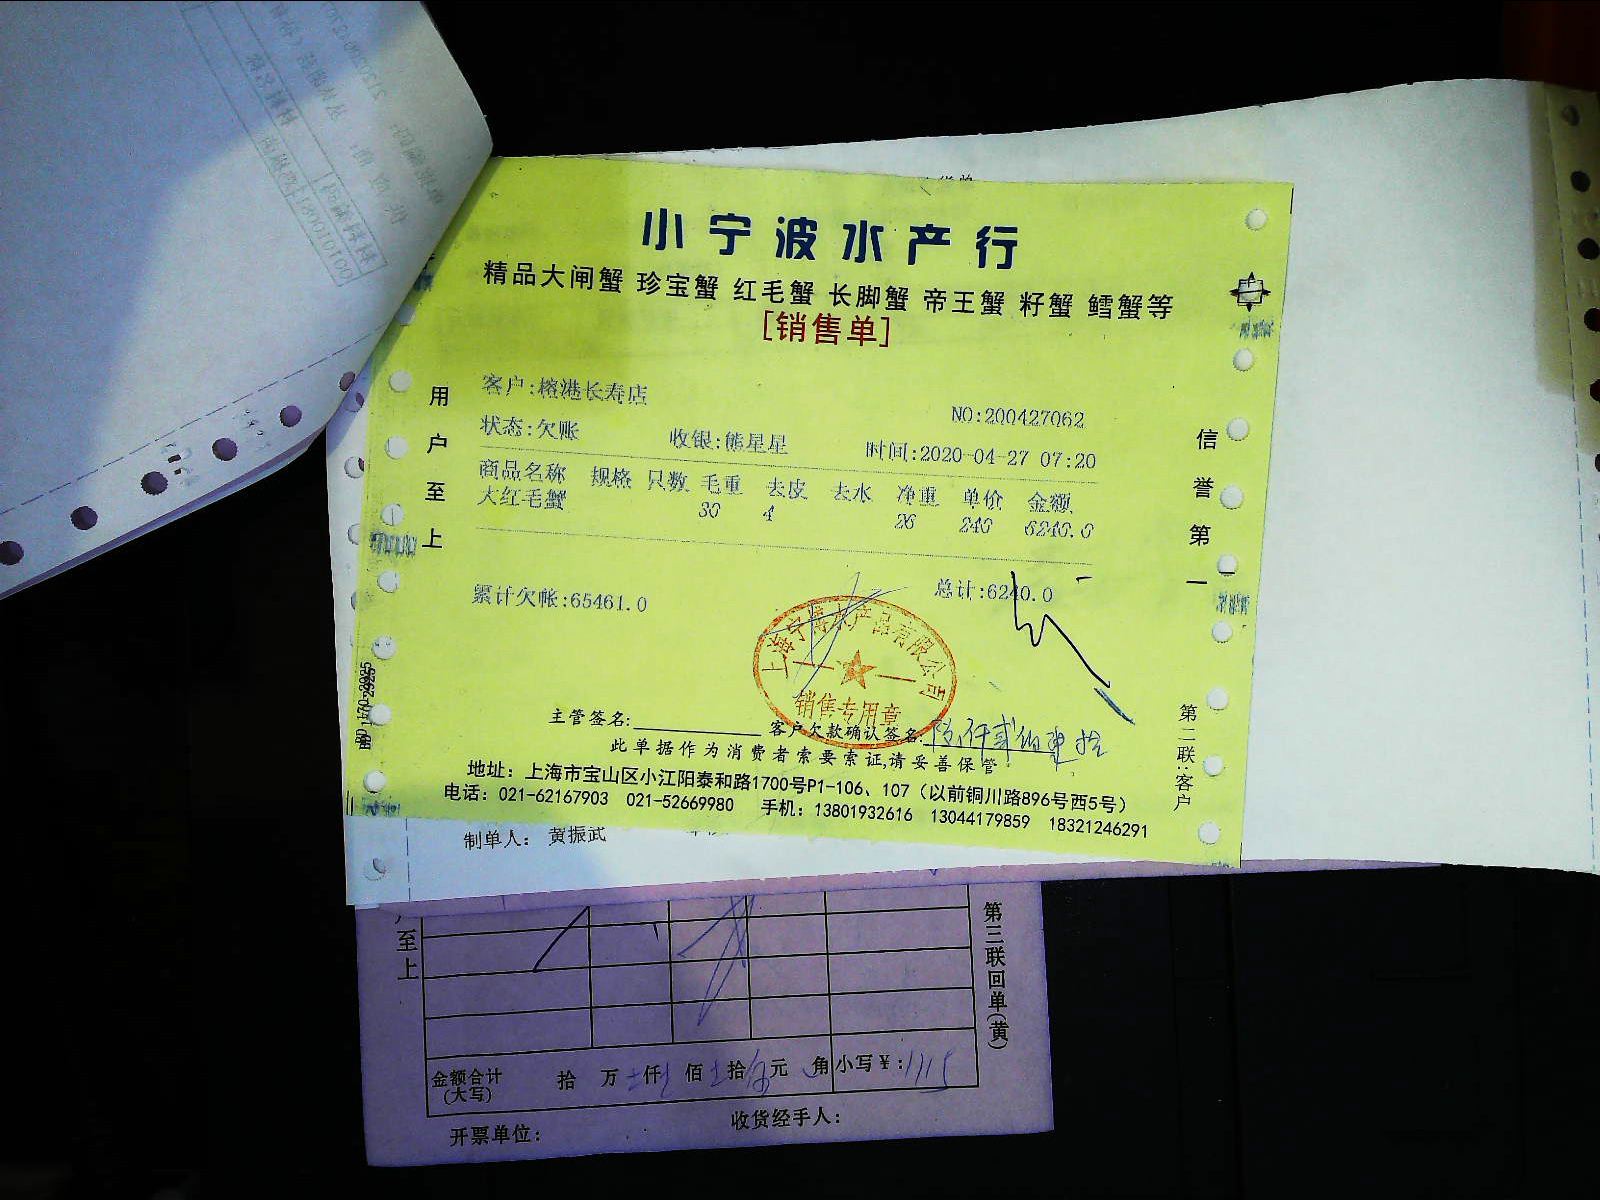 小宁波水产行
精品大闸蟹 珍宝蟹 红毛蟹 长脚蟹 帝王蟹 籽蟹 鳕蟹等
[销售单]
用户至上
信誉第一
客户:榕港长寿店
NO:200427062
状态:欠账 收银:熊星星 时间:2020-04-27 07:20
商品名称 规格 只数 毛重 去皮 去水 净重 单价 金额
大红毛蟹 30 4 26 240 6240.0
累计欠帐:65461.0 总计:6240.0
上海宁博水产品有限公司
销售专用章
主管签名: 客户欠款确认签名: 陆仟贰佰肆拾
此单据作为消费者索要索证,请妥善保管
地址：上海市宝山区小江阳泰和路1700号P1-106、107（以前铜川路896号西5号）
电话：021-62167903 021-52669980 手机：13801932616 13044179859 18321246291
第二联:客户
制单人： 黄振武
至上
第三联回单(黄)
金额合计 拾 万 仟 佰 拾 元 角 小写￥:1715
(大写)
开票单位: 收货经手人: